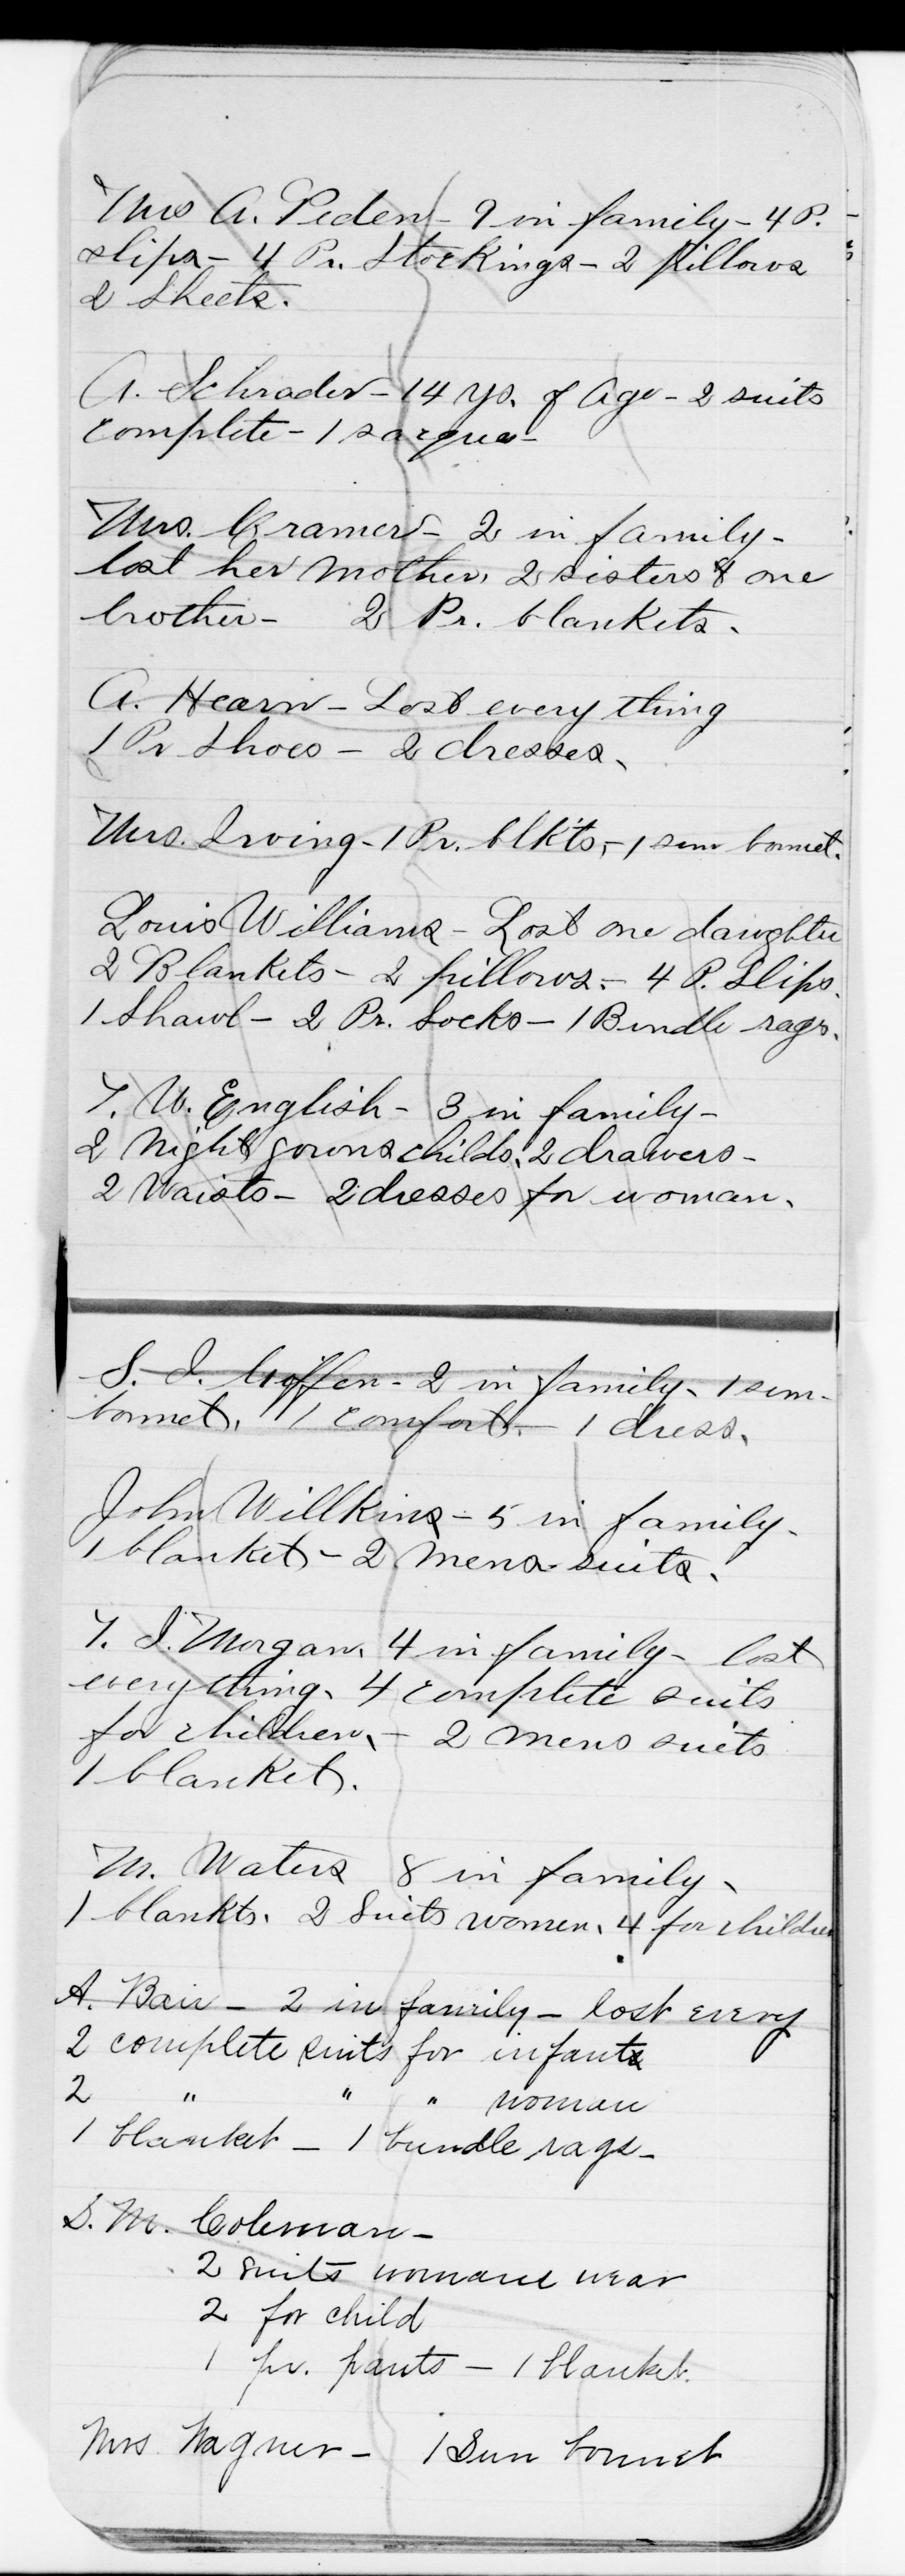 Mrs A. Peden - 9 in family - 4 P.
slips - 4 Pr. Stockings - 2 Pillows
2 Sheets.
A. Schrader - 14 ys. of Age - 2 suits
complete - 1 sacque -
Mrs. Cramer - 2 in family -
lost her mother, 2 sisters & one
brother - 2 Pr. blankets.
A. Hearn - Lost every thing
1 Pr Shoes - 2 dresses.
Mrs. Irving - 1 Pr. blkts, - 1 sun bonnet.
Louis Williams - Lost one daughter
2 Blankets - 2 pillows. - 4 P. Slips.
1 Shawl - 2 Pr. Socks - 1 Bundle rags.
T. W. English - 3 in family -
2 Night gowns childs. 2 drawers -
2 Waists - 2 dresses for woman.
S. I. Giffen - 2 in family - 1 sun-
bonnet. 1 comfort. - 1 dress.
John Willkins - 5 in family -
1 blanket - 2 mens suits.
T. I. Morgan. 4 in family - lost
everything. 4 complete suits
for children. - 2 mens suits
1 blanket.
M. Waters 8 in family.
1 blankts. 2 Suits women. 4 for children
A. Bair - 2 in family - lost every
2 complete suits for infants
2 " " " woman
1 blanket - 1 bundle rags -
S. M. Coleman -
2 suits womans wear
2 for child
1 pr. pants - 1 blanket.
Mrs Wagner - 1 Sun bonnet